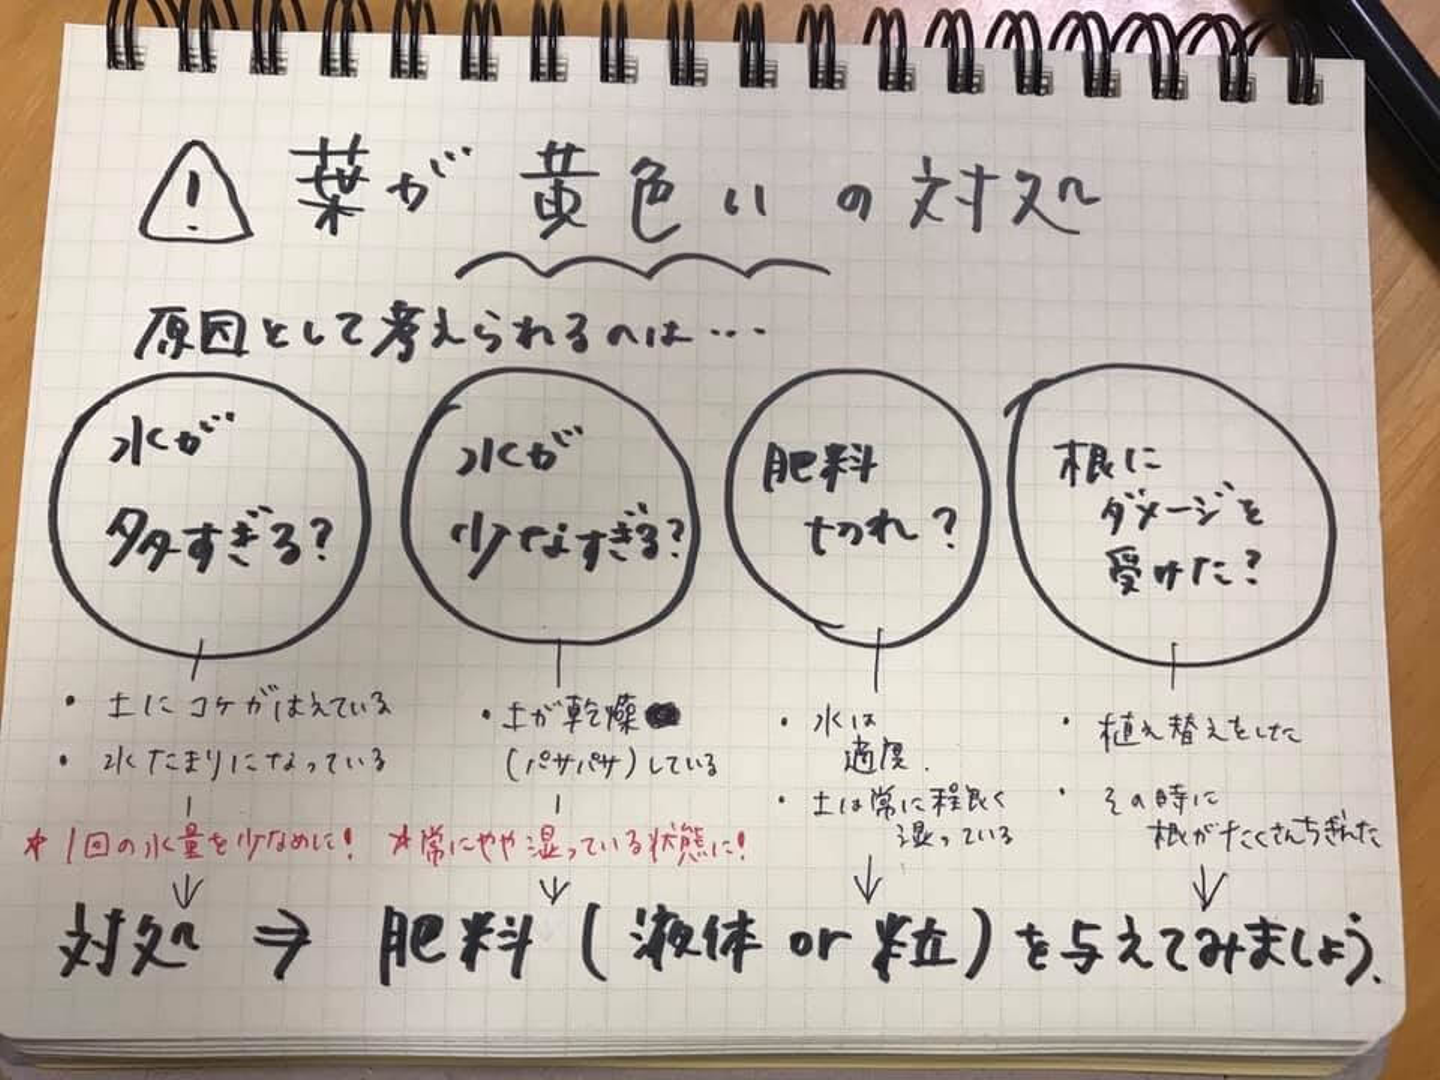 ! 葉が黄色いの対処
原因として考えられるのは…
水が
多すぎる?
水が
少なすぎる?
肥料
切れ?
根に
ダメージを
受けた?
・土にコケがはえている
・水たまりになっている
★1回の水量を少なめに!
・土が乾燥
(パサパサ)している
★常にやや湿っている状態に!
・水は
適度.
・土は常に程良く
湿っている
・植え替えをした
・その時に
根がたくさんちぎれた
対処 ⇒ 肥料(液体 or 粒)を与えてみましょう.